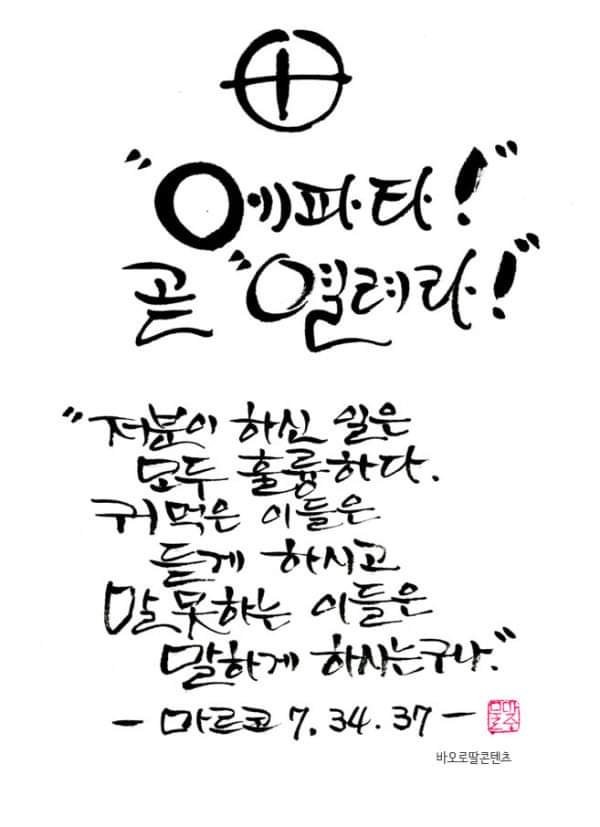 "에파타!"
곧 "열려라!"
"저분이 하신 일은
모두 훌륭하다.
귀먹은 이들은
듣게 하시고
말못하는 이들은
말하게 하시는구나."
- 마르코 7, 34. 37 -
바오로딸콘텐츠